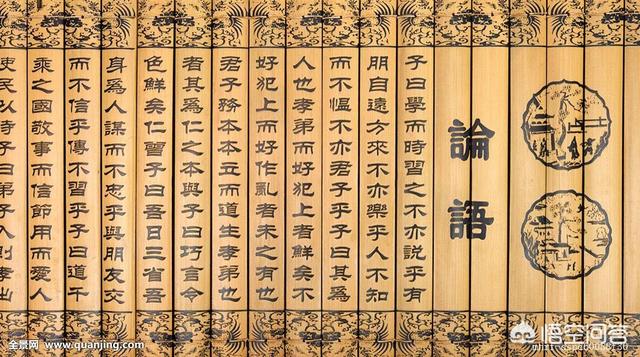 論語
子曰學而時習之不亦說乎有
朋自遠方來不亦樂乎人不知
而不愠不亦君子乎子曰其爲
人也孝弟而好犯上者鮮矣不
好犯上而好作亂者未之有也
君子務本本立而道生孝弟也
者其爲仁之本與子曰巧言令
色鮮矣仁曾子曰吾日三省吾
身爲人謀而不忠乎與朋友交
而不信乎傳不習乎子曰道千
乘之國敬事而信節用而愛人
使民以時子曰弟子入則孝出
全景网 www.quanjing.com
悟空问答